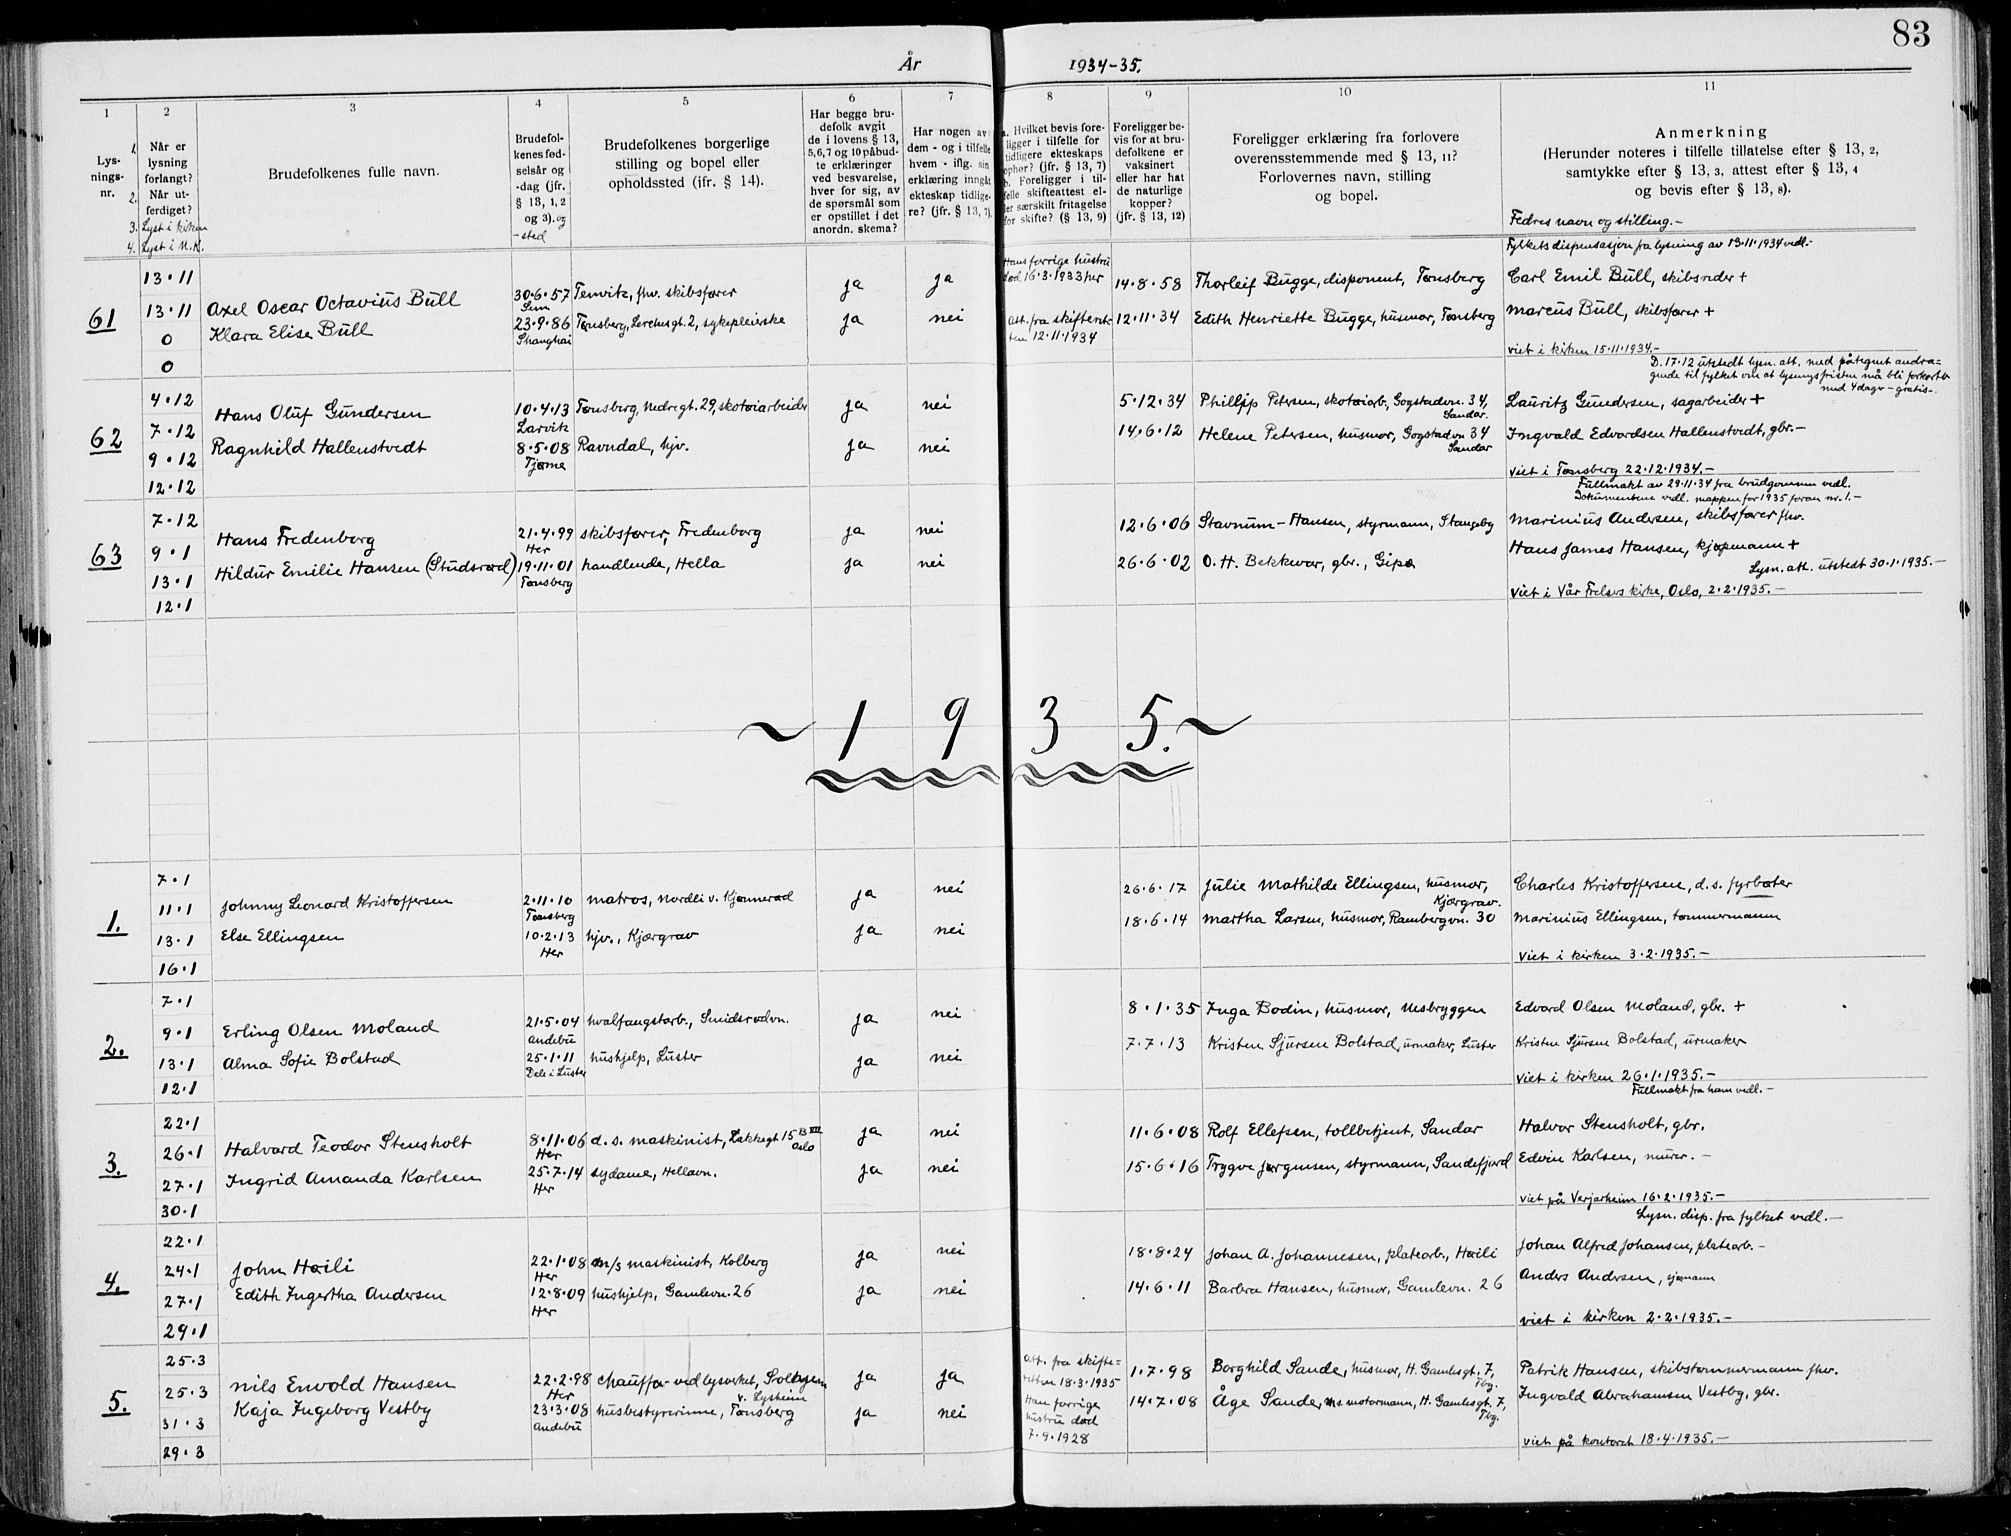 83
År 1934-35.
1 2 3 4 5 6 7 8 9 10 11
1. Lys-
nings-
nr.
Når er
lysning
forlangt?
2. Når ut-
ferdiget?
3. Lyst i kirken
4. Lyst i N.K.
Brudefolkenes fulle navn.
Brudefol-
kenes fød-
selsår og
-dag (jfr.
§ 13, 1, 2
og 3). og
-sted
Brudefolkenes borgerlige
stilling og bopel eller
opholdssted (jfr. § 14).
Har begge bru-
defolk avgit
de i lovens § 13,
5, 6, 7 og 10 påbud-
te erklæringer
ved besvarelse,
hver for sig, av
de spørsmål som
er opstillet i det
anordn. skema?
Har nogen av
dem - og i tilfelle
hvem - iflg. sin
erklæring inngåt
ekteskap tidlige-
re? (jfr. § 13, 7).
a. Hvilket bevis fore-
ligger i tilfelle for
tidligere ekteskaps
ophør? (jfr. § 13, 7)
b. Foreligger i til-
felle skifteattest el-
ler særskilt fritagelse
for skifte? (§ 13, 9)
Foreligger be-
vis for at bru-
defolkene er
vaksinert
eller har hat
de naturlige
kopper?
(jfr. § 13, 12)
Foreligger erklæring fra forlovere
overensstemmende med § 13, 11?
Forlovernes navn, stilling
og bopel.
Anmerkning
(Herunder noteres i tilfelle tillatelse efter § 13, 2,
samtykke efter § 13, 3, attest efter § 13, 4
og bevis efter § 13, 8).
Fedres navn og stilling.-
Fylkets dispensasjon fra lysning av 13.11.1934 vedl.-
61
13.11
13.11
0
0
Axel Oscar Octavius Bull
Klara Elise Bull
30.6.57
Sem
23.9.86
Shanghai
Tenvik, fhv. skibsfører
Tønsberg, Lerchesgt. 2, sykepleirske
ja ja
ja nei
Hans forrige hustru
død 16.3.1933 her
Att. fra skifteret-
ten 12.11.1934
14.8.58
12.11.34
Thorleif Bugge, disponent, Tønsberg
Edith Henriette Bugge, husmor, Tønsberg
Carl Emil Bull, skibsreder +
Marcus Bull, skibsfører +
Viet i kirken 15.11.1934.-
D. 17.12 utstedt lysn. att. med påtegnet andra-
gende til fylket om at lysningsfristen må bli forkortet
med 4 dager - gratis.-
62
4.12
7.12
9.12
12.12
Hans Oluf Gundersen
Ragnhild Hallenstvedt
10.4.13
Larvik
8.5.08
Tjøme
Tønsberg, Nedregt. 29, skotøiarbeider
Ravndal, hjv.
ja nei
ja nei
5.12.34
14.6.12
Phillip Petersen, skotøiarb, Gogstadvn. 34,
Sandar.
Helene Petersen, husmor, Gogstadvn 34
Sandar
Lauritz Gundersen, sagarbeider +
Ingvald Edvardsen Hallenstvedt, gbr.-
Viet i Tønsberg 22.12.1934.-
Fullmakt av 29.11.34 fra brudgommen vedl.
Dokumentene vedl. mappen for 1935 foran nr. 1.-
63
7.12
9.1
13.1
12.1
Hans Fredenborg
Hildur Emilie Hansen (Studsrød)
21.4.99
Her
19.11.01
Tønsberg
skibsfører, Fredenborg
handlende, Hella
ja nei
ja nei
12.6.06
26.6.02
Stavnum-Hansen, styrmann, Stangeby
O. H. Bekkevar, gbr., Gipø
Marinius Andersen, skibsfører fhv.
Hans James Hansen, kjøpmann +
Lysn. att. utstedt 30.1.1935.-
Viet i Vår Frelsers kirke, Oslo, 2.2.1935.-
~ 1 9 3 5. ~
1.
7.1
11.1
13.1
16.1
Johnny Leonard Kristoffersen
Else Ellingsen
2.11.10
Tønsberg
10.2.13
Her
matros, Nordli v. Kjønnerød
hjv., Kjærgrav
ja nei
ja nei
26.6.17
18.6.14
Julie Mathilde Ellingsen, husmor,
Kjærgrav.
Martha Larsen, husmor, Rambergvn. 30
Charles Kristoffersen, d.s. fyrbøter
Marinius Ellingsen, tømmermann
Viet i kirken 3.2.1935.-
2.
7.1
9.1
13.1
12.1
Erling Olsen Moland
Alma Sofie Bolstad
21.5.04
Andebu
25.1.11
Dale i Luster
hvalfangstarb., Smidsrødvn.
hushjelp, Luster
ja nei
ja nei
8.1.35
7.7.13
Inga Bodin, husmor, Nesbryggen
Kristen Sjursen Bolstad, urmaker, Luster
Edvard Olsen Moland, gbr. +
Kristen Sjursen Bolstad, urmaker
Viet i kirken 26.1.1935.-
Fullmakt fra ham vedl.-
3.
22.1
26.1
27.1
30.1
Halvard Teodor Stensholt
Ingrid Amanda Karlsen
8.11.06
Her
25.7.14
Her
d.s. maskinist, Lakkegt 15 B VII
Oslo
sydame, Hellavn.
ja nei
ja nei
11.6.08
15.6.16
Rolf Ellefsen, tollbetjent, Sandar
Trygve Jørgensen, styrmann, Sandefjord
Halvor Stensholt, gbr.
Edvin Karlsen, murer.-
Viet på Verjarheim 16.2.1935.-
Lysn. disp. fra fylket vedl.-
4.
22.1
24.1
27.1
29.1
John Høili
Edith Ingertha Andersen
22.1.08
Her
12.8.09
Her
m/s maskinist, Kolberg
hushjelp, Gamlevn. 26
ja nei
ja nei
18.8.24
14.6.11
Johan A. Johannesen, platearb., Høili
Barbra Hansen, husmor, Gamlevn. 26
Johan Alfred Johansen, platearb.-
Anders Andersen, sjømann
Viet i kirken 2.2.1935.-
5.
25.3
25.3
31.3
29.3
Nils Envold Hansen
Kaja Ingeborg Vestby
22.2.98
Her
23.3.08
Andebu
chauffør ved lysverket, Solbyen
v. Lysheim
husbestyrerinne, Tønsberg
ja ja
ja nei
Att. fra skifte-
retten 18.3.1935
Han forrige
hustru død
7.9.1928
1.7.98
14.7.08
Borghild Sande, husmor, H. Gamlesgt. 7,
Tbg.
Åge Sande, ms motormann, H. Gamlesgt 7,
Tbg.
Patrik Hansen, skibstømmermann fhv.
Ingvald Abrahamsen Vestby, gbr.
Viet på kontoret 18.4.1935.-